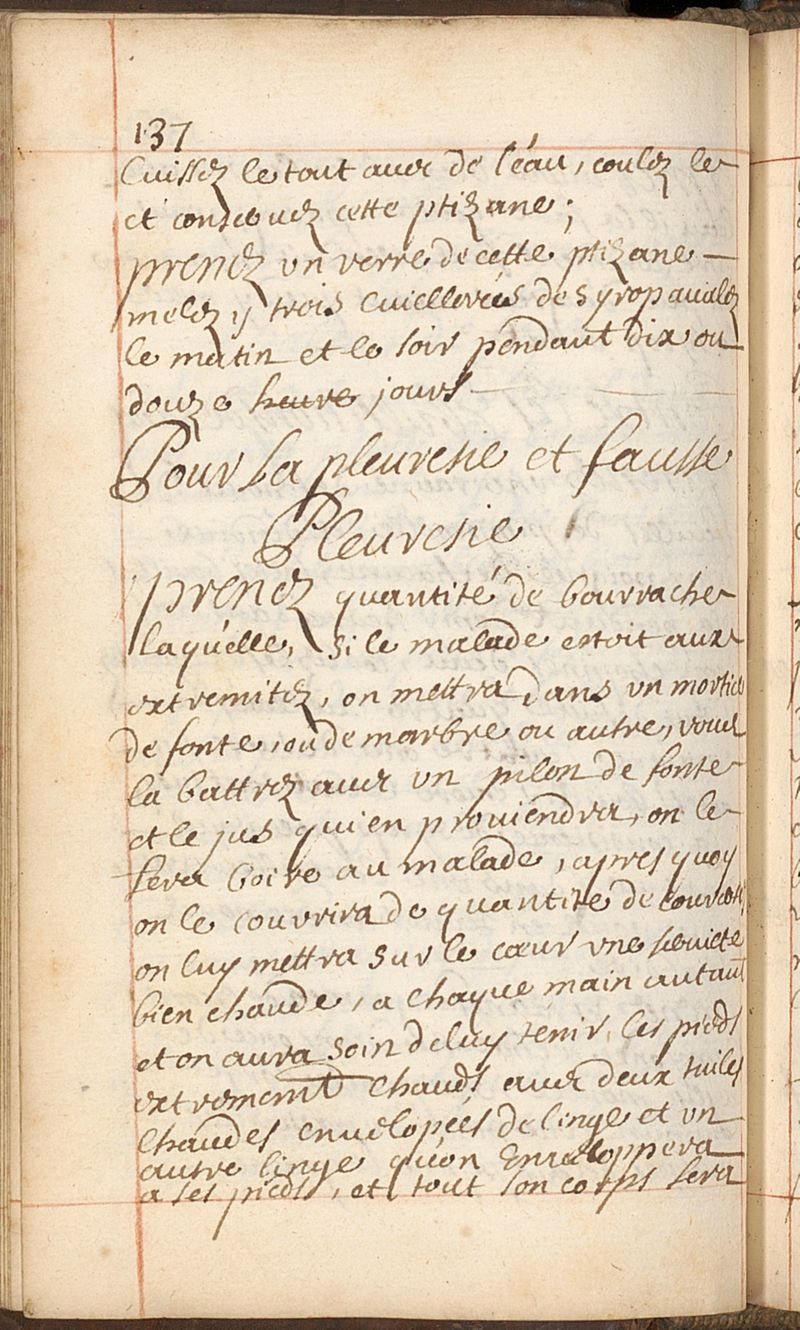 137
Cuissez le tout avec de l'éau, coulez le
et conservez cette ptizane;
prenez un verre de cette ptizane —
melez y trois cuiellerées de syrop avalez
le matin et le soir pendant dix ou
douze heure jours —
Pour la pleuresie et fausse
Pleuresie
prenez quantité de bourrache
laquélle, si le malade estoit aux
extremitez, on mettra dans un mortier
de fonte, ou de marbre ou autre, vous
la battrez avec un pilon de fonte
et le jus qui en proviendra, on le
fera boire au malade, apres quoy
on le couvrira de quantité de couvertes,
on luy mettra sur le cœur une serviete
bien chaude, a chaque main autant
et on aura soin de luy tenir, les pieds
extremement chauds avec deux tuiles
chaudes envelopées de linge et un
autre linge qu'on Enveloppera
a ses pieds, et tout son corps sera